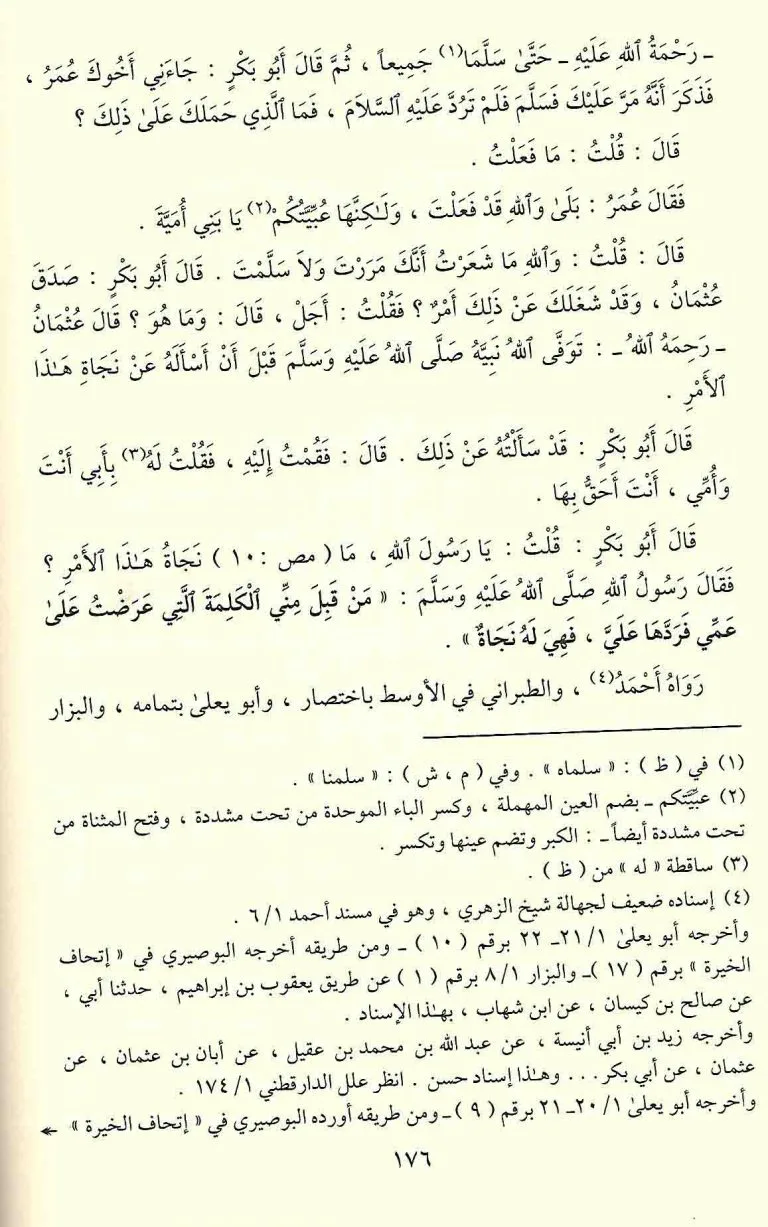 ـ رَحْمَةُ ٱللهِ عَلَيْهِ ـ حَتَّىٰ سَلَّمَا(١) جَمِيعاً ، ثُمَّ قَالَ أَبُو بَكْرٍ : جَاءَنِي أَخُوكَ عُمَرُ ،
فَذَكَرَ أَنَّهُ مَرَّ عَلَيْكَ فَسَلَّمَ فَلَمْ تَرُدَّ عَلَيْهِ ٱلسَّلاَمَ ، فَمَا ٱلَّذِي حَمَلَكَ عَلَىٰ ذَلِكَ ؟
قَالَ : قُلْتُ : مَا فَعَلْتُ .
فَقَالَ عُمَرُ : بَلَىٰ وَٱللهِ قَدْ فَعَلْتَ ، وَلَـٰكِنَّهَا عُبِّيَّتُكُمْ(٢) يَا بَنِي أُمَيَّةَ .
قَالَ : قُلْتُ : وَٱللهِ مَا شَعَرْتُ أَنَّكَ مَرَرْتَ وَلاَ سَلَّمْتَ . قَالَ أَبُو بَكْرٍ : صَدَقَ
عُثْمَانُ ، وَقَدْ شَغَلَكَ عَنْ ذَلِكَ أَمْرٌ ؟ فَقُلْتُ : أَجَلْ ، قَالَ : وَمَا هُوَ ؟ قَالَ عُثْمَانُ
ـ رَحِمَهُ ٱللهُ ـ : تَوَفَّى ٱللهُ نَبِيَّهُ صَلَّى ٱللهُ عَلَيْهِ وَسَلَّمَ قَبْلَ أَنْ أَسْأَلَهُ عَنْ نَجَاةِ هَـٰذَا
ٱلأَمْرِ .
قَالَ أَبُو بَكْرٍ : قَدْ سَأَلْتُهُ عَنْ ذَلِكَ . قَالَ : فَقُمْتُ إِلَيْهِ ، فَقُلْتُ لَهُ(٣) بِأَبِي أَنْتَ
وَأُمِّي ، أَنْتَ أَحَقُّ بِهَا .
قَالَ أَبُو بَكْرٍ : قُلْتُ : يَا رَسُولَ ٱللهِ ، مَا ( مص : ١٠ ) نَجَاةُ هَـٰذَا ٱلأَمْرِ ؟
فَقَالَ رَسُولُ ٱللهِ صَلَّى ٱللهُ عَلَيْهِ وَسَلَّمَ : « مَنْ قَبِلَ مِنِّي ٱلْكَلِمَةَ ٱلَّتِي عَرَضْتُ عَلَىٰ
عَمِّي فَرَدَّهَا عَلَيَّ ، فَهِيَ لَهُ نَجَاةٌ » .
رَوَاهُ أَحْمَدُ(٤) ، والطبراني في الأوسط باختصار ، وأبو يعلىٰ بتمامه ، والبزار
(١) في ( ظ ) : « سلماه » . وفي ( م ، ش ) : « سلمنا » .
(٢) عبِّيَّتكم ـ بضم العين المهملة ، وكسر الباء الموحدة من تحت مشددة ، وفتح المثناة من
تحت مشددة أيضاً ـ : الكبر وتضم عينها وتكسر .
(٣) ساقطة « له » من ( ظ ) .
(٤) إسناده ضعيف لجهالة شيخ الزهري ، وهو في مسند أحمد ٦/١ .
وأخرجه أبو يعلىٰ ٢١/١ـ ٢٢ برقم ( ١٠ ) ـ ومن طريقه أخرجه البوصيري في « إتحاف
الخيرة » برقم ( ١٧ )ـ والبزار ٨/١ برقم ( ١ ) عن طريق يعقوب بن إبراهيم ، حدثنا أبي ،
عن صالح بن كيسان ، عن ابن شهاب ، بهـٰذا الإسناد .
وأخرجه زيد بن أبي أنيسة ، عن عبد الله بن محمد بن عقيل ، عن أبان بن عثمان ، عن
عثمان ، عن أبي بكر . . . وهـٰذا إسناد حسن . انظر علل الدارقطني ١٧٤/١ .
وأخرجه أبو يعلىٰ ٢٠/١ـ ٢١ برقم ( ٩ ) ـ ومن طريقه أورده البوصيري في « إتحاف الخيرة » ←
١٧٦